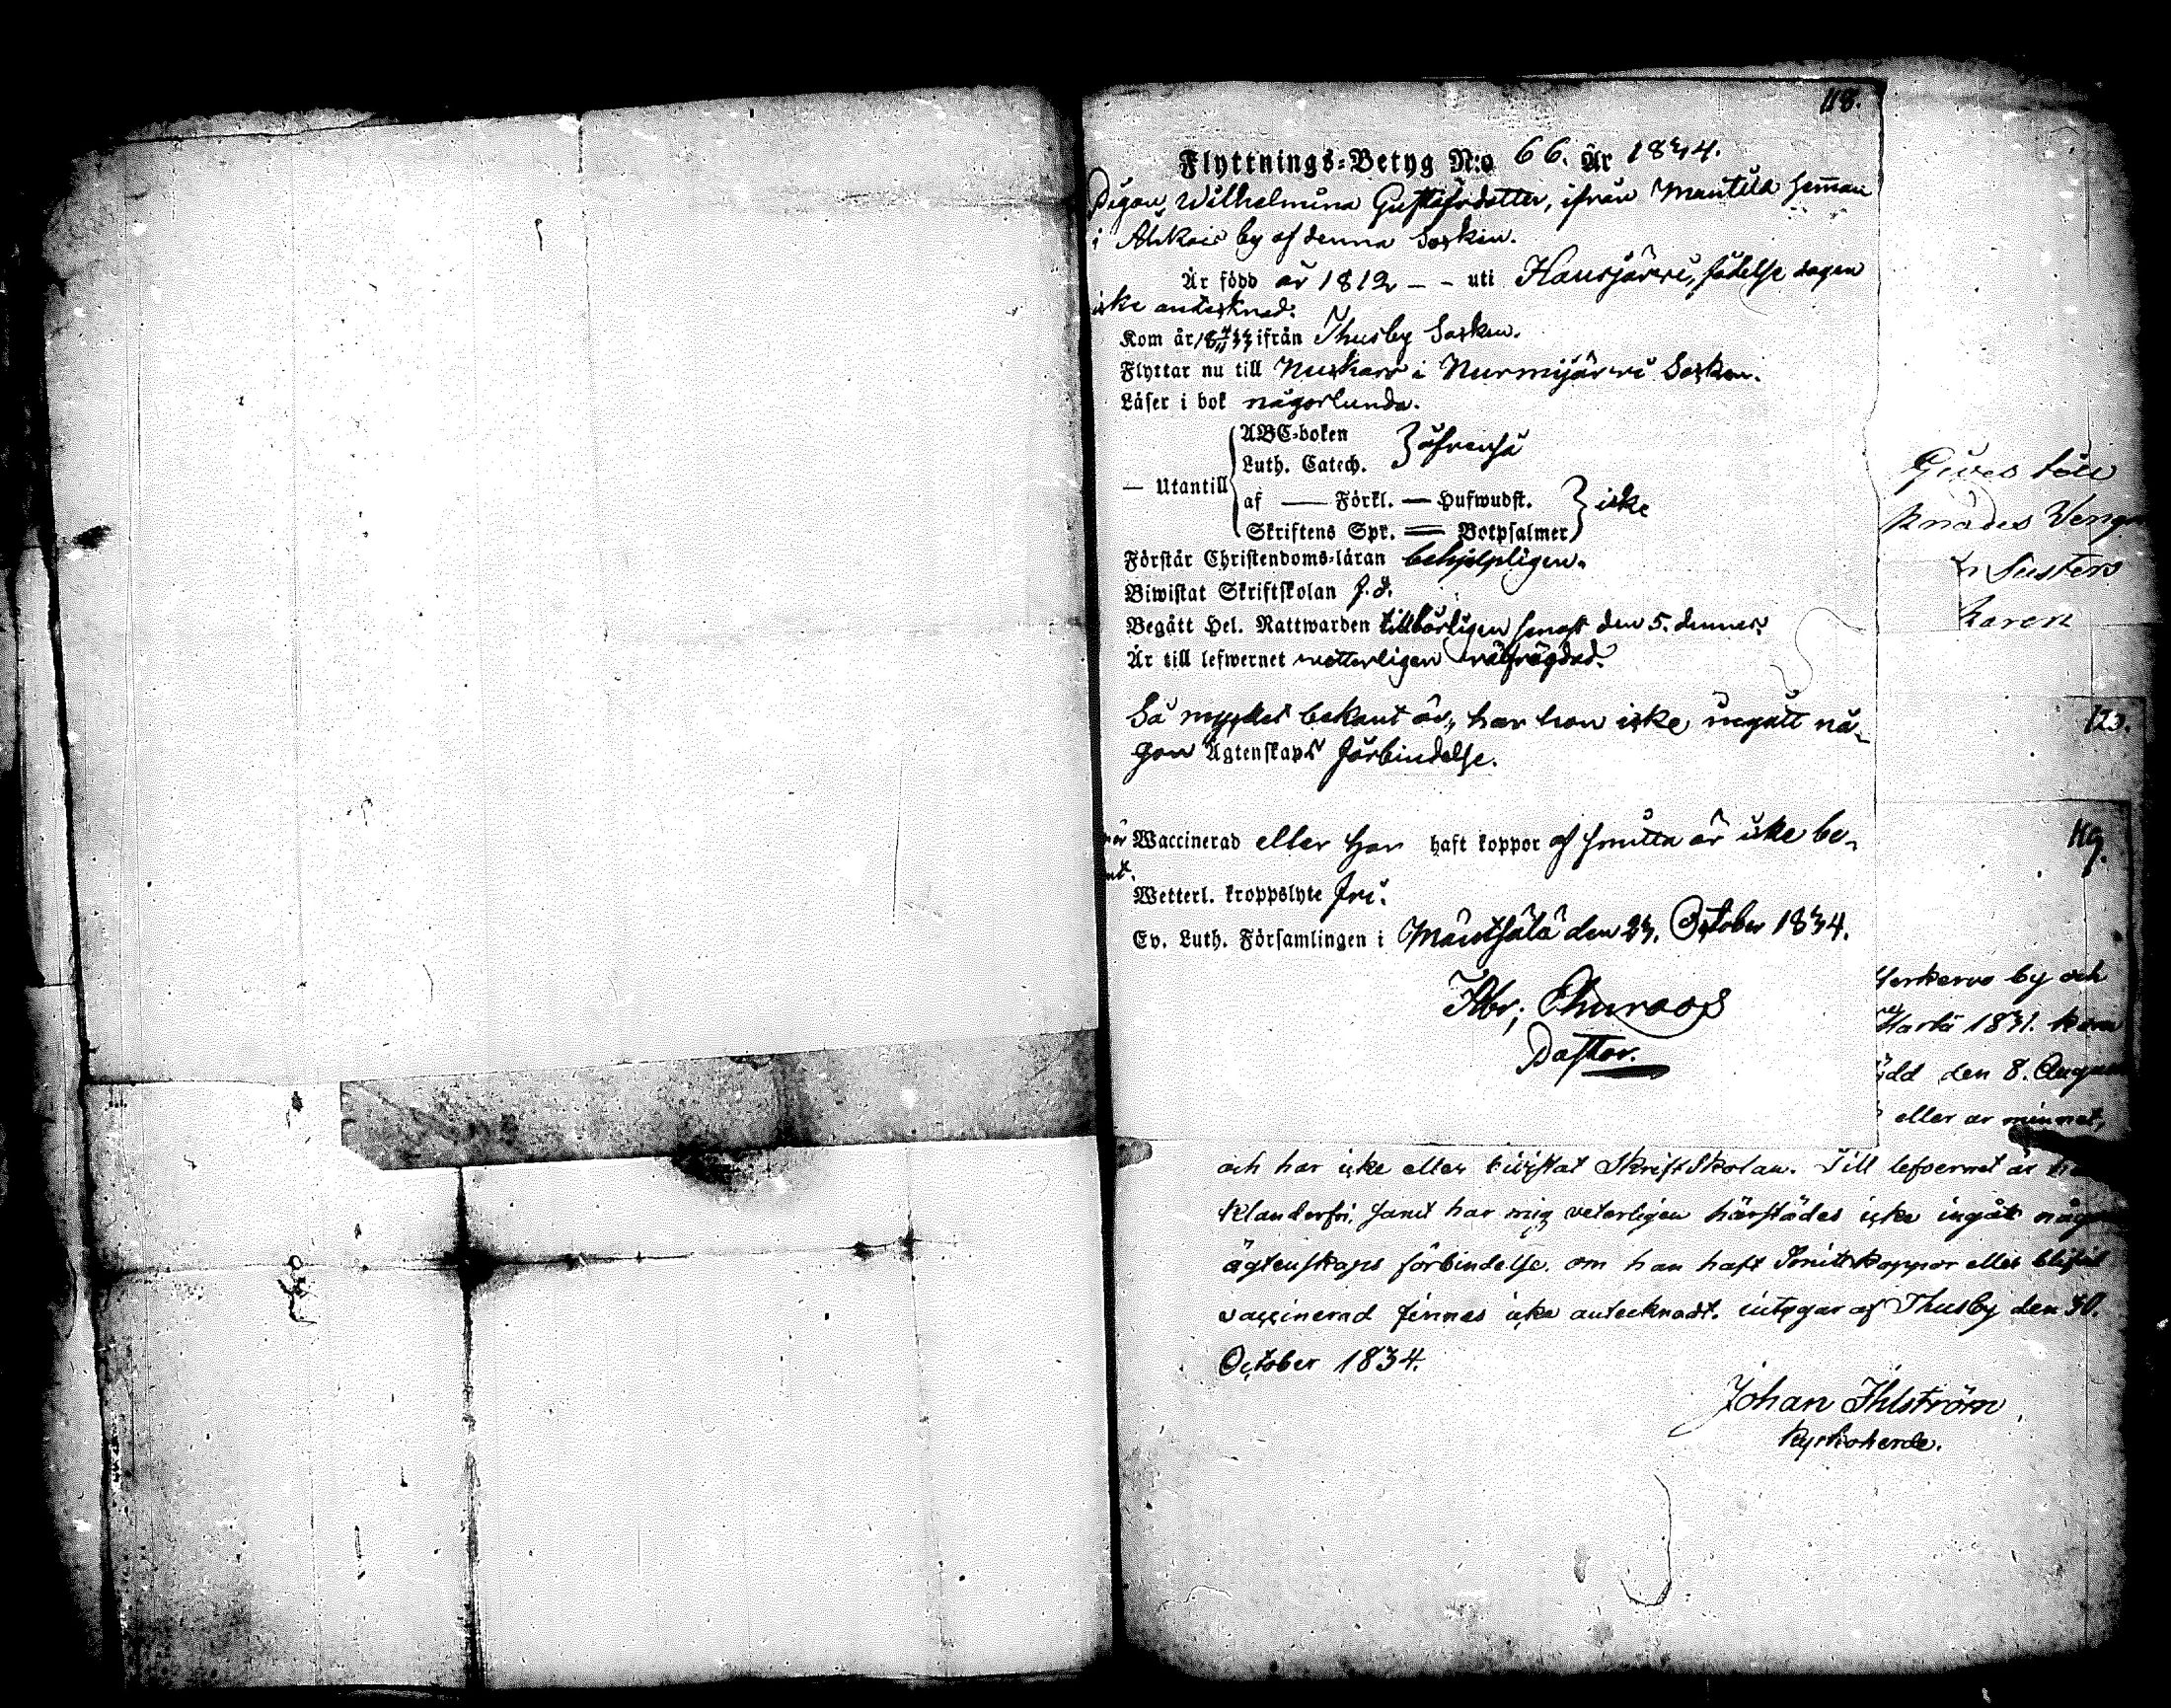 118.
Flyttnings-Betyg N:o 66. År 1834.
Pigan Wilhelmina Gustafsdotter, ifrån Mantila heman
i Ahkois by af denna Socken.
Är född år 1812 – – uti Hausjärvi, födelse dagen
icke antecknad.
Kom år 18 33 ifrån Thusby Socken.
Flyttar nu till Nuckars i Nurmijärvi Socken.
Läser i bok någorlunda.
— Utantill
ABC-boken
Luth. Catech. } äfvenså
af — Förkl. — Hufwudst.
Skriftens Spr. — Botpsalmer } icke
Förstår Christendoms-läran behjelpligen.
Biwistat Skriftskolan J. d.
Begått Hel. Nattwarden tillbörligen senast den 5. dennes.
Är till lefwernet vetterligen välfrägdad.
Så mycket bekant är, har hon icke ingått nå-
gon Ägtenskaps förbindelse.
Waccinerad eller har haft koppor af smitta är icke be-
Wetterl. kroppslyte fri.
Ev. Luth. Församlingen i Mäntsälä den 23. October 1834.
Pastor.
Gives
knades
Susters
karen
123.
119.
by och
1831. kom
den 8. Augu
eller ur minnet,
och har icke eller bivistat Skriftskolan. Till lefvernet är
klanderfri, samt har mig veterligen härstädes icke ingått någon
ägtenskaps förbindelse. om han haft Smittkoppor eller blifvit
vaccinerad finnes icke antecknadt. intygar af Thusby den 30.
October 1834.
Johan Ihlström
Kyrkoherde.